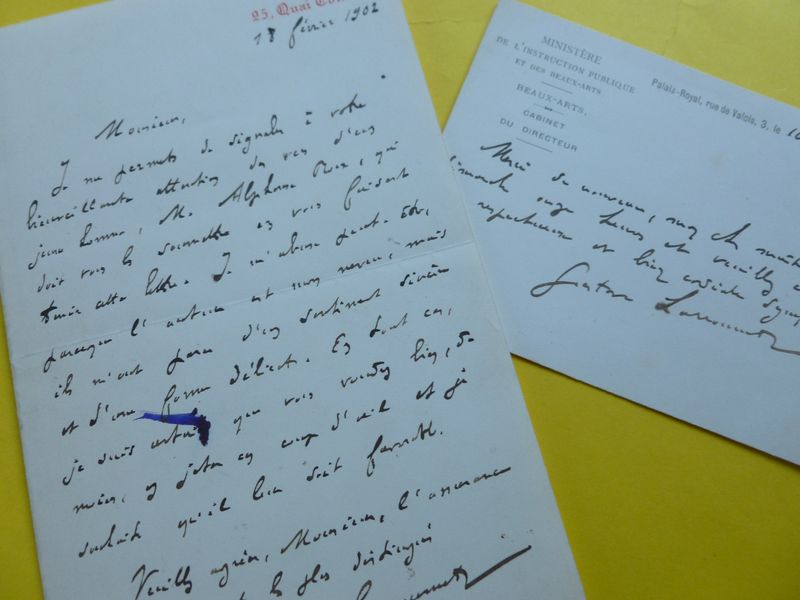 25, Quai
18 février 1902
Monsieur,
Je me permets de signaler à votre
bienveillante attention les vers d'un
jeune homme, M. Alphonse Roux, qui
doit vous les soumettre en vous faisant
tenir cette lettre. Je m'abuse peut-être,
parce que l'auteur est mon neveu, mais
ils m'ont paru d'un sentiment sincère
et d'une forme délicate. En tout cas,
je suis certain que vous voudrez bien, du
moins, y jeter un coup d'œil et je
souhaite qu'il leur soit favorable.
Veuillez agréer, Monsieur, l'assurance
les plus distingués
MINISTÈRE
DE L'INSTRUCTION PUBLIQUE
ET DES BEAUX-ARTS
BEAUX-ARTS.
CABINET
DU DIRECTEUR
Palais-Royal, rue de Valois, 3, le
Merci de nouveau, mon cher maître
dimanche onze heures et veuillez
respectueuse et bien cordiale
Gustave Larroumet